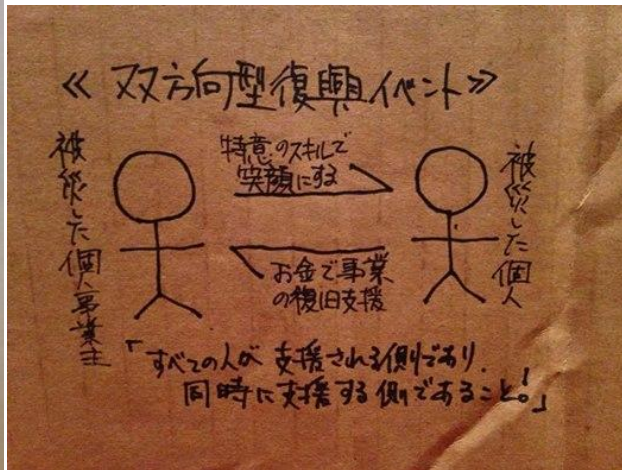 ≪ 双方向型復興イベント ≫
被災した個人事業主
特意のスキルで
笑顔にする
お金で事業
の復旧支援
被災した個人
「すべての人が支援される側であり、
同時に支援する側であること!。」